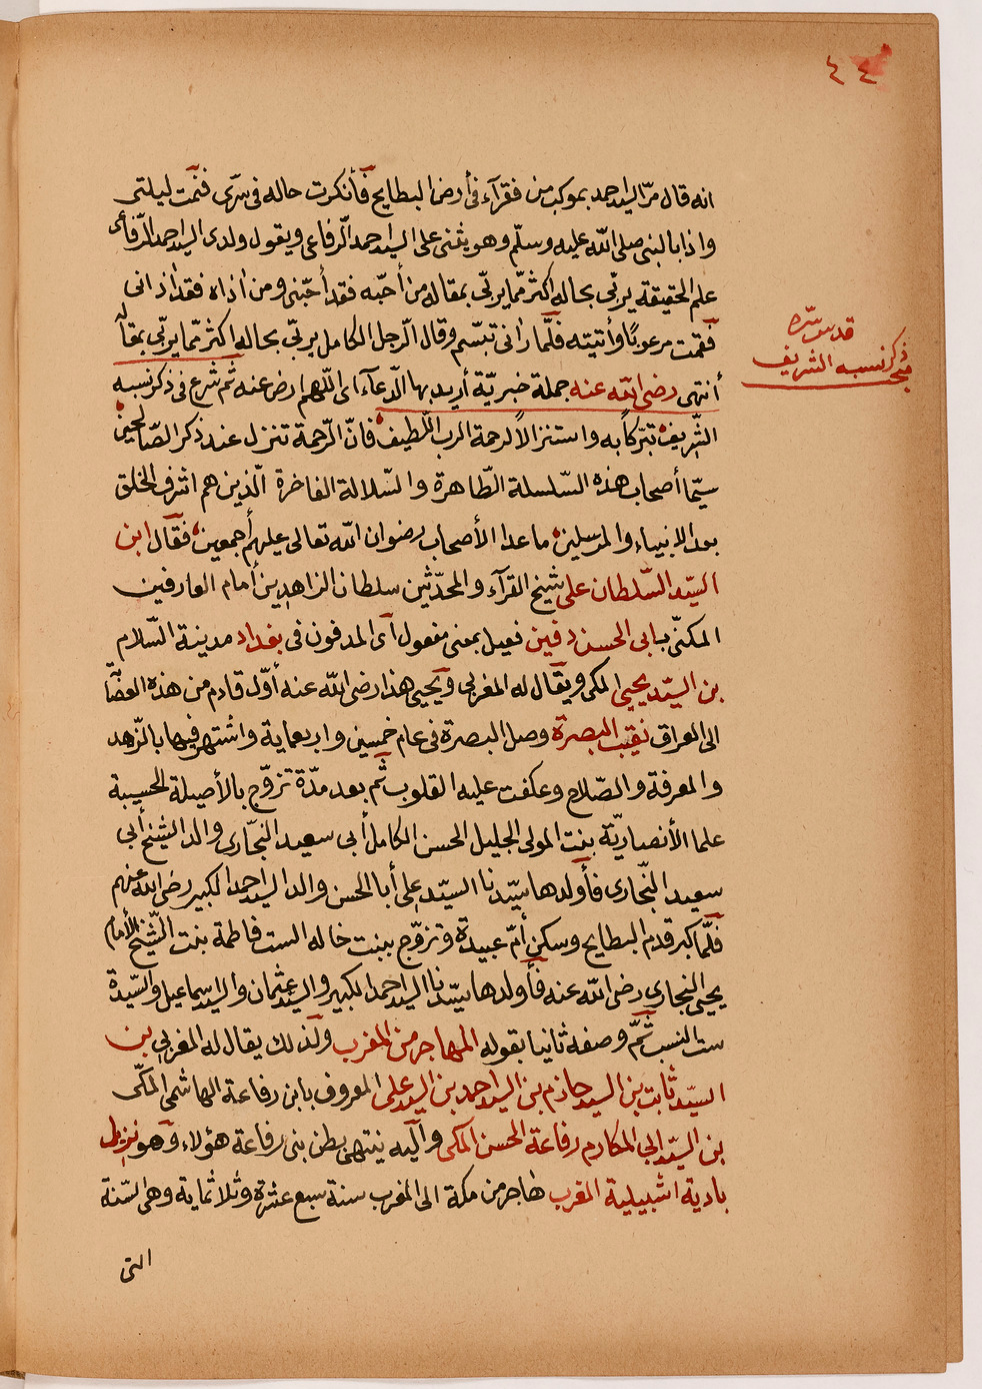 ٤٤
انه قال مرّ السيد احمد بموكب من فقرآء فى أرض البطايح فأنكرت حاله فى سرّى فنمت ليلتى
واذا بالنبى صلى الله عليه وسلّم وهو يثنى على السيد احمد الرّفاعى ويقول ولدى السيد احمد الرّفاعى
علم الحقيقة يربّى بحاله اكثر ممّا يربّى بمقاله من أحبّه فقد أحبّنى ومن اذاه فقد اذانى
فقمت مرعوبًا وأتيته فلمّا رانى تبسّم وقال الرّجل الكامل يربّى بحاله اكثر ممّا يربّى بمقاله
قدس سرّه
مبحث ذكر نسبه الشريف
أنتهى رضى الله عنه جملة خبريّة أريد بها الدّعآء اى اللّهم ارض عنه ثم شرع فى ذكر نسبه
الشّريف تبرّكاً به واستنزالاً لرحمة الرب اللّطيف فانّ الرّحمة تنزل عند ذكر الصّالحين
سيّما أصحاب هذه السّلسلة الطّاهرة والسّلالة الفاخرة الّذين هم اشرف الخلق
بعد الانبياء والمرسلين ما عدا الأصحاب رضوان الله تعالى عليهم أجمعين فقال ابن
السيّد السّلطان على شيخ القرآء والمحدّثين سلطان الزاهدين أمام العارفين
المكنّى بابى الحسن دفين فعيل بمعنى مفعول اى المدفون فى بغداد مدينة السّلام
بن السيّد يحيى المكى ويقال له المغربى ويحيى هذا رضى الله عنه أوّل قادم من هذه العصّابة
الى العراق نقيب البصرة وصل البصرة فى عام خمسين واربعماية واشتهر فيها بالزّهد
والمعرفة والصّلاح وعكفت عليه القلوب ثم بعد مدّة تزوّج بالأصيلة الحسيبة
علما الأنصاريّة بنت المولى الجليل الحسن الكامل أبى سعيد النجّارى والد الشيخ أبى
سعيد النجّارى فأولدها سيّدنا السيّد على أبا الحسن والد السيد احمد الكبير رضى الله عنهم
فلمّا كبر قدم البطايح وسكن أمّ عبيدة وتزوّج ببنت خاله الست فاطمة بنت الشّيخ الأمام
يحيى النجارى رضى الله عنه فأولدها سيّدنا السيد احمد الكبير والسيد عثمان والسيد اسماعيل والسّيدة
ست النسب ثمّ وصفه ثانيا بقوله المهاجر من المغرب ولذلك يقال له المغربى بن
السيّد ثابت بن السيد حازم بن السيد احمد بن السيد على المعروف بابن رفاعة الهاشمى المكّى
بن السيّد ابى المكارم رفاعة الحسن المكى واليه ينتهى بطن بنى رفاعة هؤلاء وهو نزيل
بادية اشبيلية المغرب هاجر من مكة الى المغرب سنة سبع عشرة وثلاثماية وهى السّنة
التى